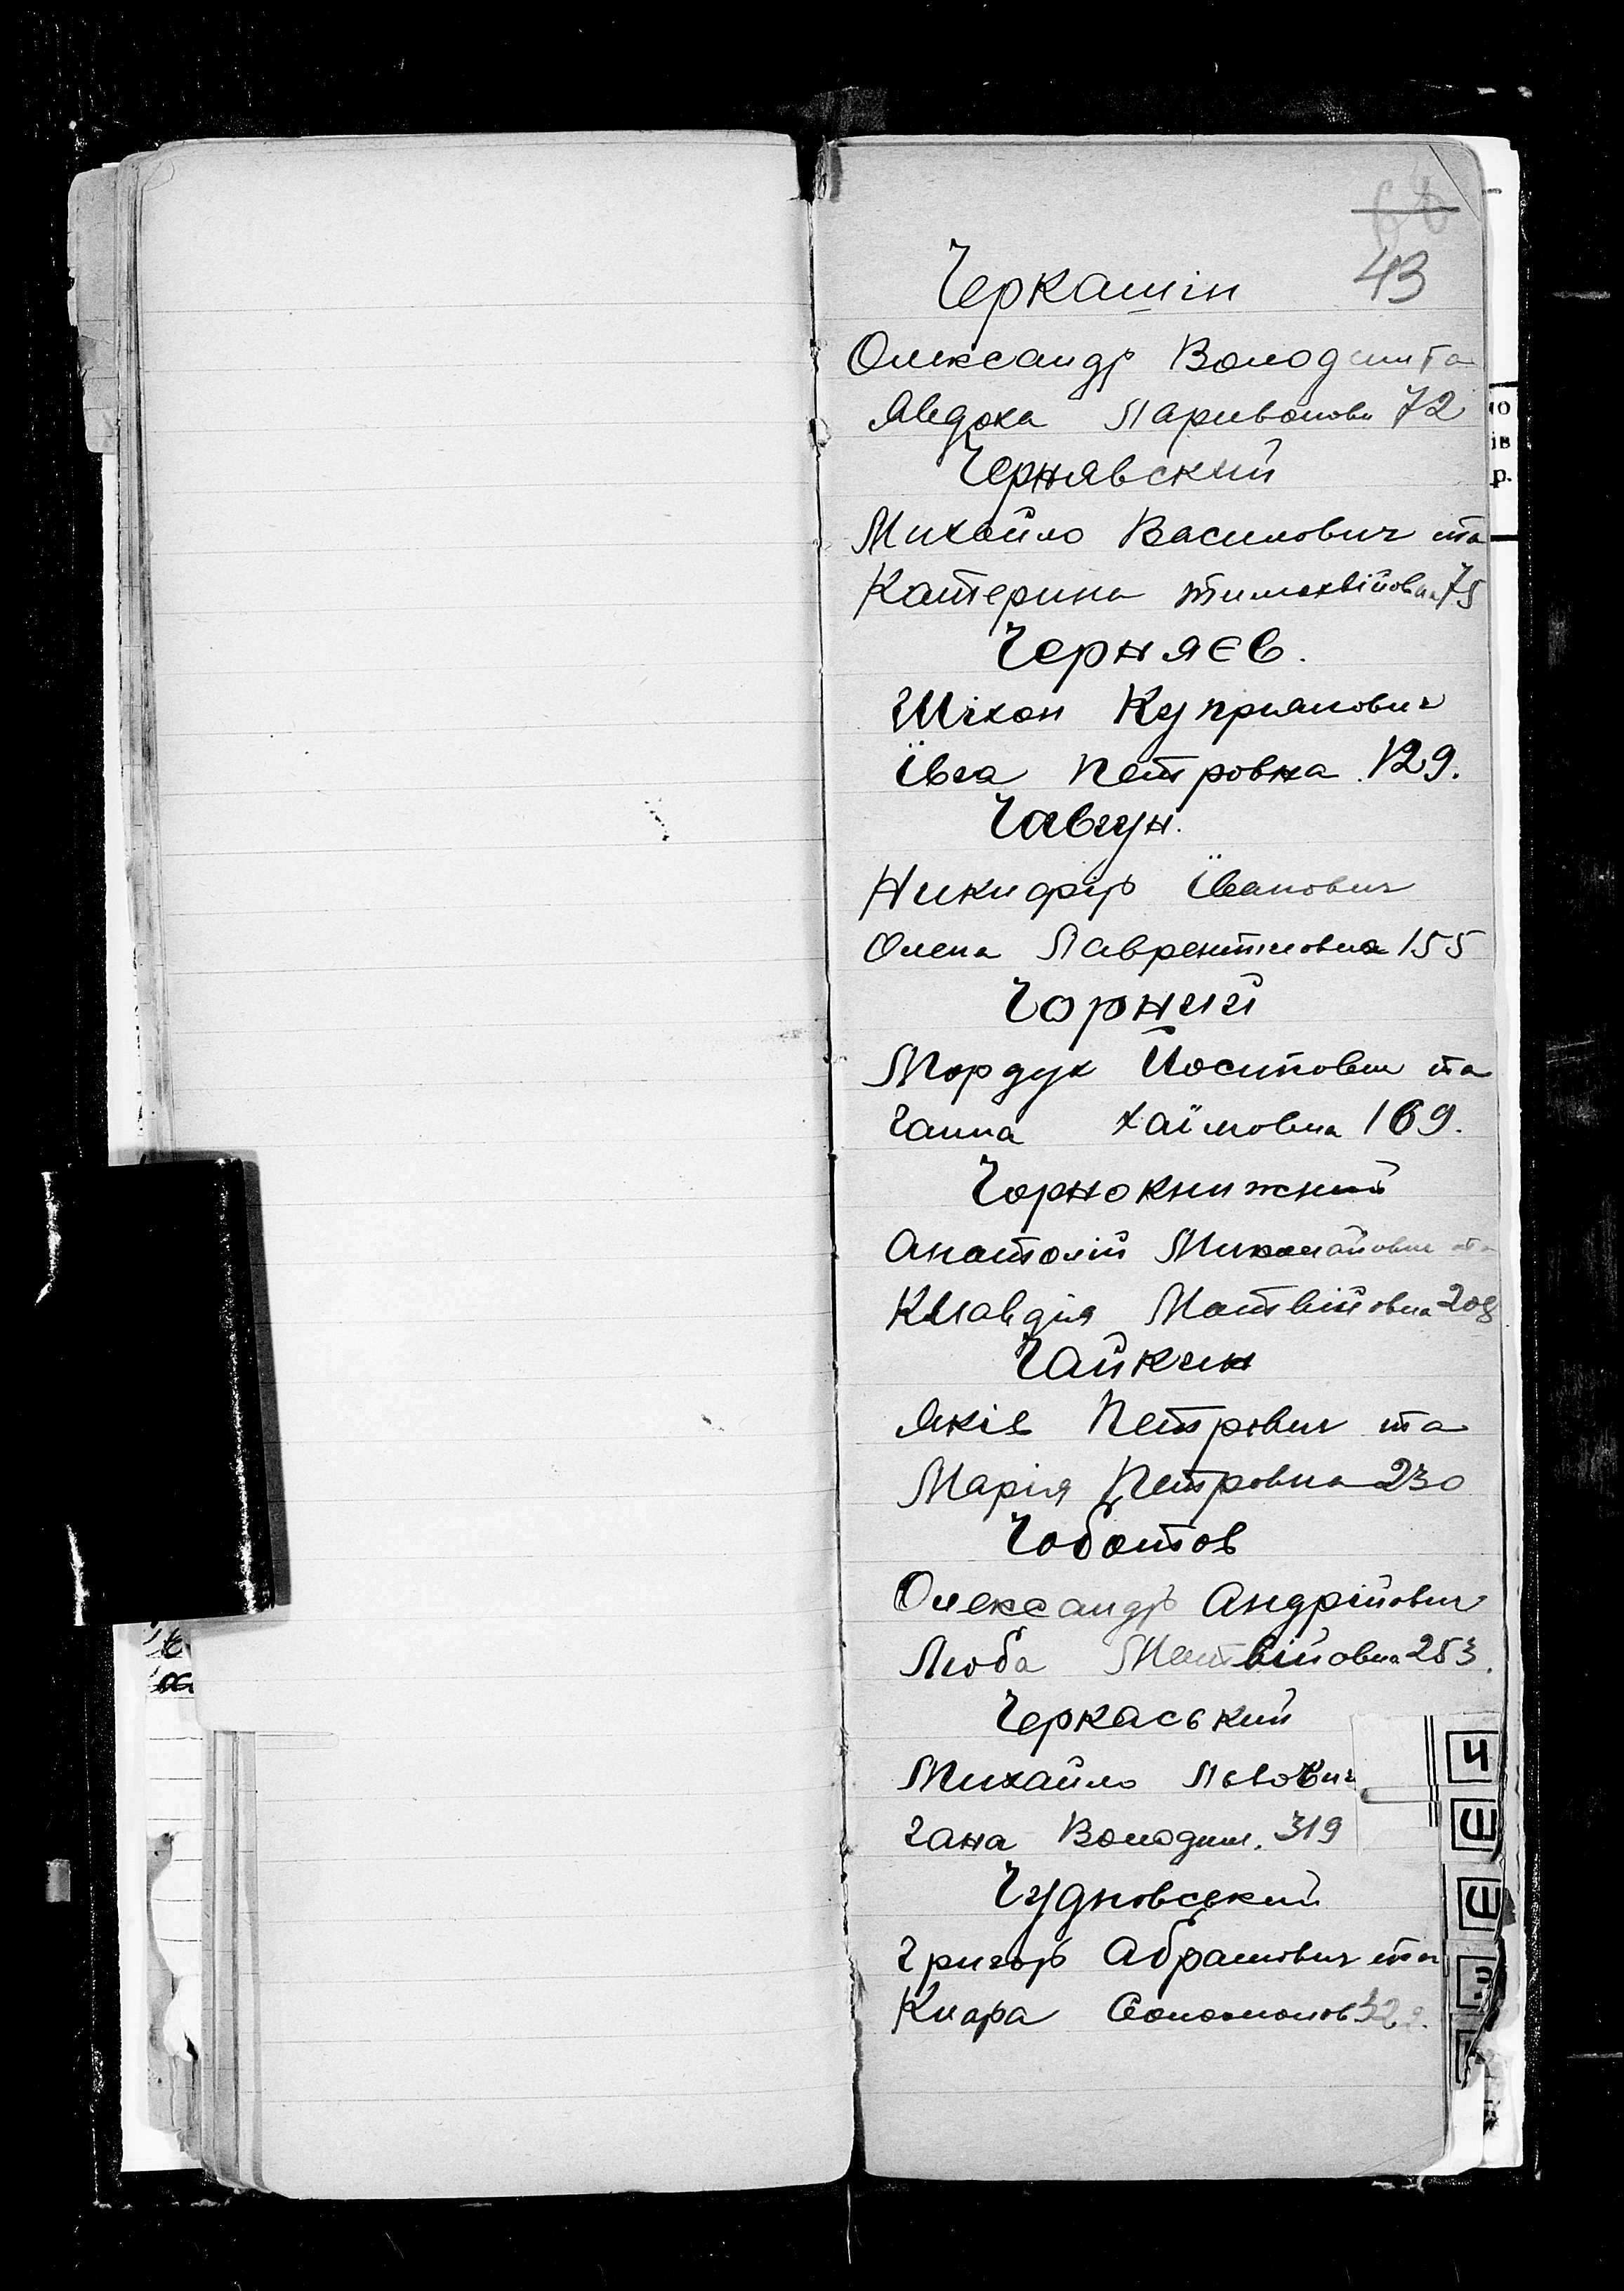 68
43
Черкашін
Олександр Володим та
Явдоха Ларивонов 72
Чернявский
Михайло Василович та
Катерина Тимохвійовна 75
Черняєв.
Тихон Купріянович
Івга Петровна 129.
Чавгун.
Никифір Іванович
Олена Лаврентиовна 155
Чорний
Мордух Йосипович та
Ганна Хаімовна 169.
Чорнокнижний
Анатолій Миколайович та
Клавдія Матвійовна 208
Чайкин
Яків Петрович та
Марія Петровна 230
Чоботов
Олександр Андрійович
Люба Матвійовна 253.
Черкаський
Михайло Львович
Гана Володим. 319
Чудновський
Григор Абрамович та
Клара Соломонов
Ч
Ш
Щ